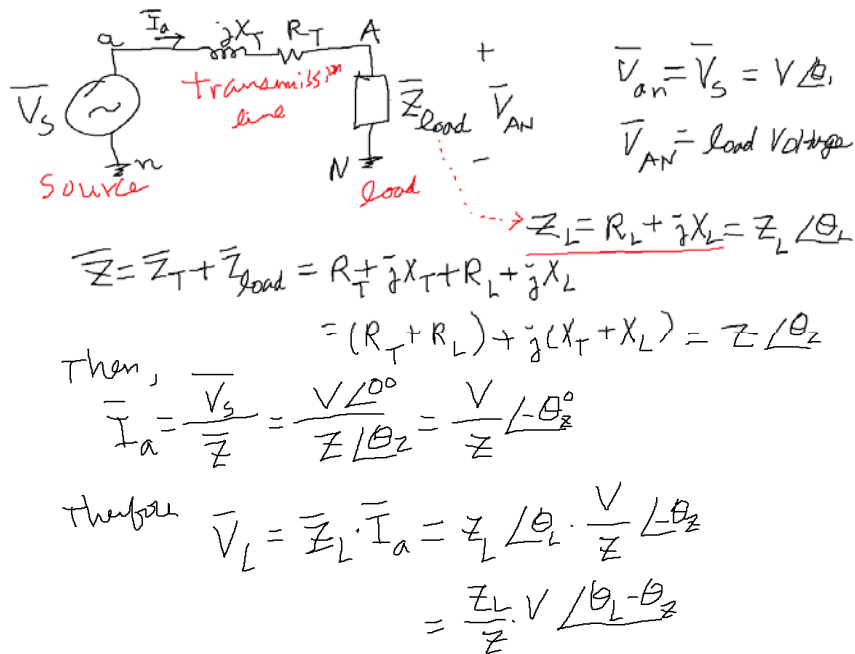 a I̅a jX_T R_T A
+
V̅s
transmission line
Z̅load V̅AN
V̅an = V̅s = V∠θ₁
V̅AN = load Voltage
n
N
−
Source
load
Z_L = R_L + jX_L = Z_L ∠θ_L
Z̅ = Z̅_T + Z̅load = R_T + jX_T + R_L + jX_L
= (R_T + R_L) + j(X_T + X_L) = Z ∠θ_Z
Then,
I̅a = V̅s / Z̅ = V∠0° / Z∠θ_Z = V/Z ∠-θ_Z°
Therfore V̅_L = Z̅_L · I̅a = Z_L ∠θ_L · V/Z ∠-θ_Z
= Z_L/Z · V ∠θ_L-θ_Z